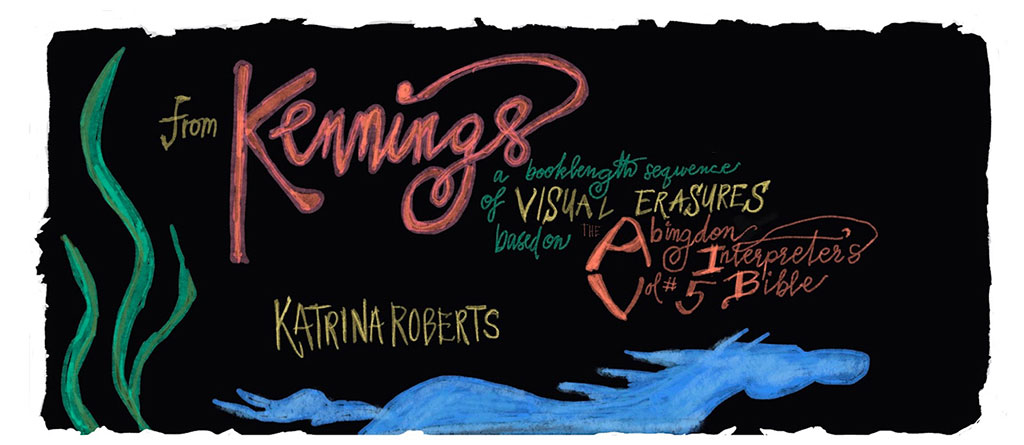 From Kennings
a booklength sequence
of VISUAL ERASURES
based on THE Abingdon
Interpreter's
Vol# 5 Bible
KATRINA ROBERTS